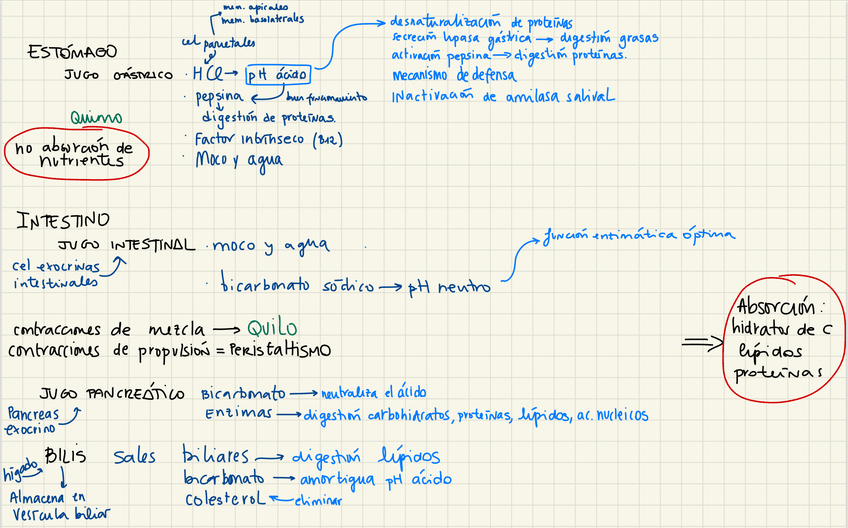 mem. apicales
mem. basolaterales
cel parietales
ESTÓMAGO
JUGO GÁSTRICO · HCl → pH ácido
desnaturalización de proteínas
secreción lipasa gástrica → digestión grasas
activación pepsina → digestión proteínas.
mecanismo de defensa
Inactivación de amilasa salival
· pepsina ← buen funcionamiento
digestión de proteínas.
· Factor intrínseco (B12)
· Moco y agua
Quimo
no absorción de
nutrientes
INTESTINO
JUGO INTESTINAL · moco y agua
cel exocrinas
intestinales
· bicarbonato sódico → pH neutro
función enzimática óptima
contracciones de mezcla → QUILO
contracciones de propulsión = PERISTALTISMO
⇒ Absorción:
hidratos de C
lípidos
proteínas
JUGO PANCREÁTICO Bicarbonato → neutraliza el ácido
Enzimas → digestión carbohidratos, proteínas, lípidos, ac. nucleicos
Pancreas
exocrino
BILIS sales biliares → digestión lípidos
hígado
bicarbonato → amortigua pH ácido
colesterol ← eliminar
Almacena en
vesícula biliar